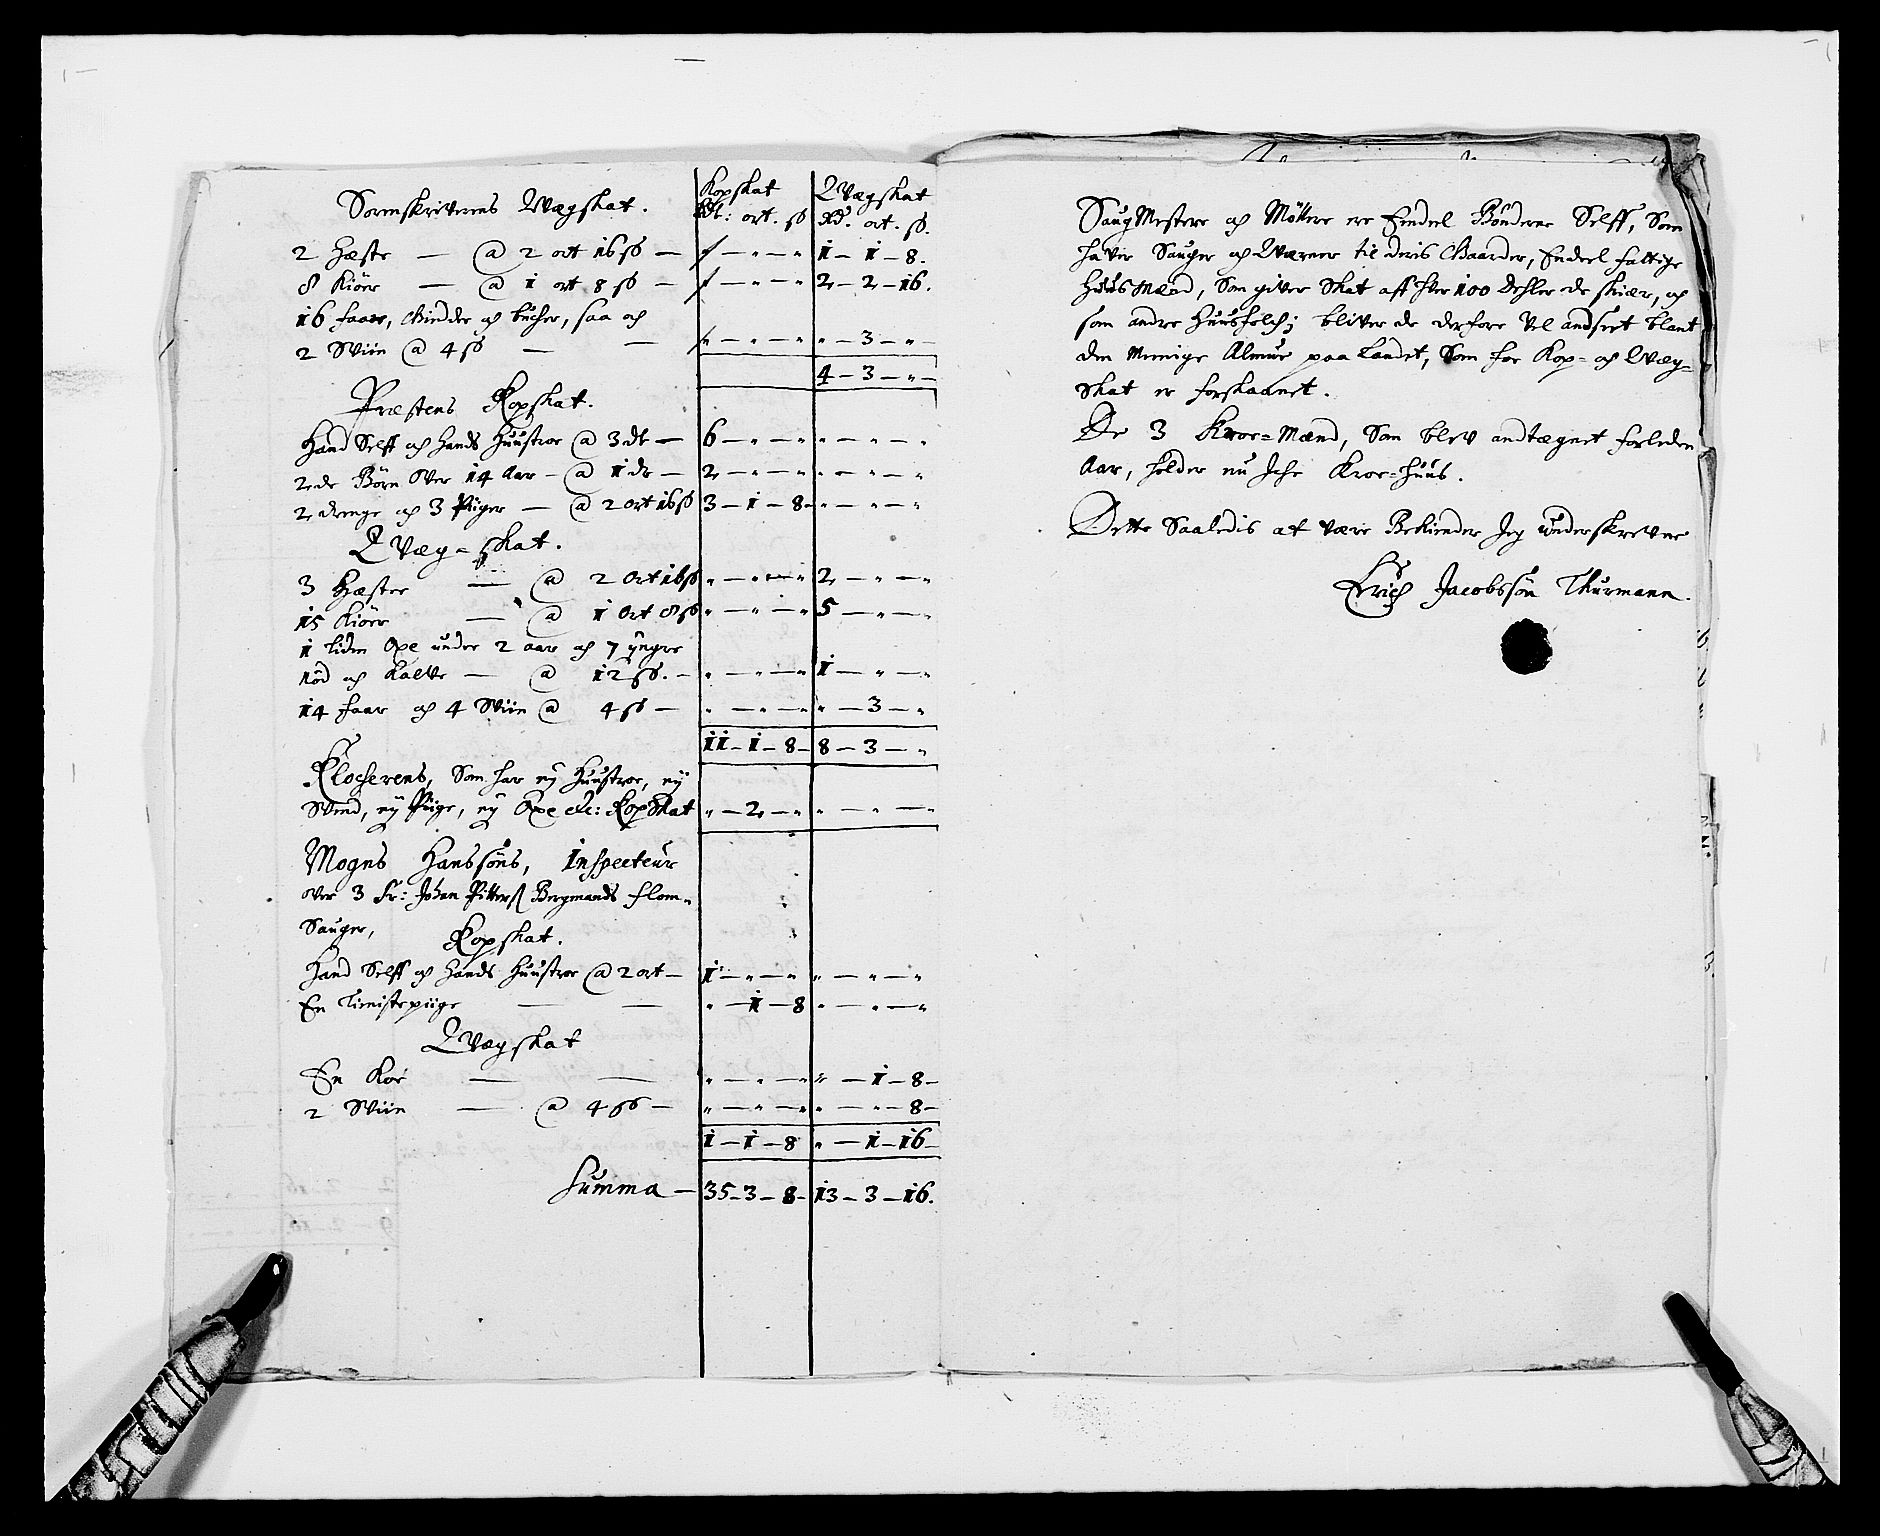 Sorenskriverens Qvægskat. Kopskat Qvægskat
Rdl: ort. ß Rd. ort. ß.
2 Hæste — @ 2 ort 16 ß — „ — „ — „ 1 — 1 — 8.
8 Kiöer — @ 1 ort 8 ß — „ — „ — „ 2 — 2 — 16.
16 faar, Giedder och bucher, saa och
2 Sviin @ 4 ß — — „ — „ — „ „ — 3 — „ —
4 — 3 — „ —
Præstens Kopskat.
Hand Selff och Hands Huustroe @ 3 dr — 6 — „ — „ „ — „ — „
2de Börn Over 14 Aar — @ 1 dr — 2 — „ — „ „ — „ — „
2 drenge och 3 Piiger — @ 2 ort 16 ß 3 — 1 — 8 „ — „ — „
Qvæg-skat.
3 Hæster — @ 2 Ort 16 ß „ — „ — „ 2 — „ — „
15 Kiöer — @ 1 Ort 8 ß „ — „ — „ 5 — „ — „
1 liden Oxe under 2 aar och 7 yngre
nöd och Kalffve — @ 12 ß. — „ — „ — „ 1 — „ — „
14 faar och 4 Sviin @ 4 ß — „ — „ — „ „ — 3 — „
11 — 1 — 8 8 — 3 — „
Klocherens, Som har ey Huustroe, ey
Svend, ey Piige, ey Oxe etc: Kopskat „ — 2 — „ „ — „ — „
Mogns Hanssöns, Inspecteur
over 3 Sr: Johan Pitterß Bergmands flom-
Sauger, Kopskat.
Hand Selff och Hands Huustroe @ 2 ort — 1 — „ — „ „ — „ — „
En Tienistepiige — — „ — 1 — 8 „ — „ — „
Qvægskat
En Koe — — „ — „ — „ „ — 1 — 8 —
2 Sviin — @ 4 ß — „ — „ — „ „ — „ — 8 —
1 — 1 — 8 „ — 1 — 16 —
Summa — 35 — 3 — 8 — 13 — 3 — 16.
Saug Mestere och Möllere ere Eendeel Bönderne Selff, Som
haver Sauger och Qværner til deris Gaarder, Endeel fattige
Huusmænd, Som giver Skat aff hver 100 Dehler de skiær, och
som andre Huusfolch; bliver de derfore vel andseet blant
den menige Almue paa Landet, Som for Kop- och Qvæg-
skat er forskaanet.
De 3 Kroe-Mænd, Som blev andtægnet forleden
Aar, holder nu Iche Kroe-Huus.
Dette Saaledis at være Bekiender Jeg underskrevne
Erich Jacobssön Thurmann.